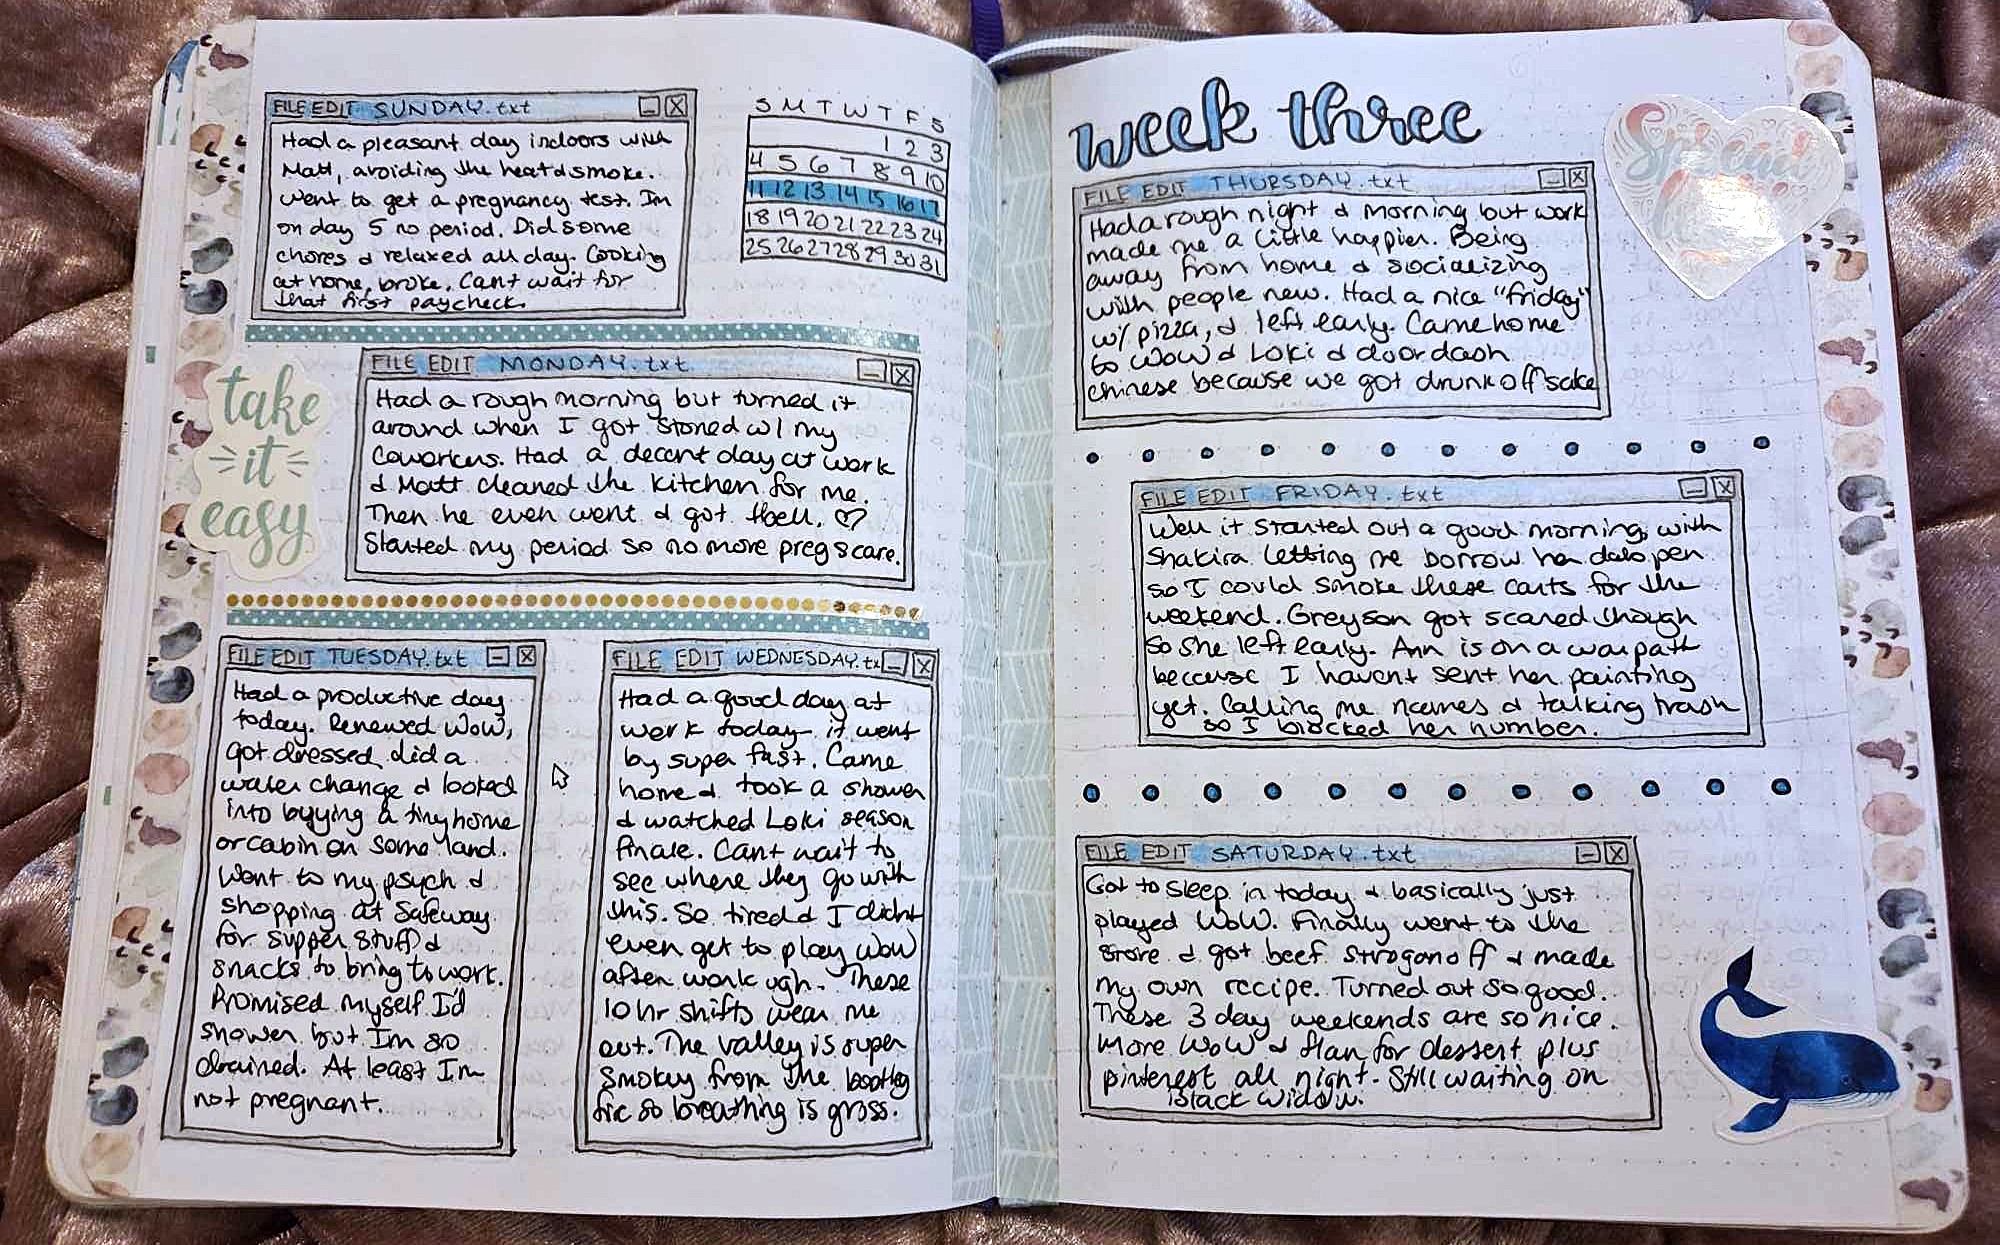 FILE EDIT SUNDAY.txt
Had a pleasant day indoors with
Matt, avoiding the heat & smoke.
Went to get a pregnancy test. Im
on day 5 no period. Did some
chores & relaxed all day. Cooking
at home, broke. Cant wait for
that first paycheck.
S M T W T F S
1 2 3
4 5 6 7 8 9 10
11 12 13 14 15 16 17
18 19 20 21 22 23 24
25 26 27 28 29 30 31
take
it
easy
FILE EDIT MONDAY.txt
Had a rough morning but turned it
around when I got stoned w/ my
coworkers. Had a decent day at work
& Matt cleaned the kitchen for me.
Then he even went & got tbell. ♡
Started my period so no more preg scare.
FILE EDIT TUESDAY.txt
Had a productive day
today. Renewed WoW,
got dressed, did a
water change & looked
into buying a tiny home
or cabin on some land.
Went to my psych &
shopping at Safeway
for supper stuff &
snacks to bring to work.
Promised myself I'd
shower but Im so
drained. At least Im
not pregnant.
FILE EDIT WEDNESDAY.tx
Had a good day at
work today it went
by super fast. Came
home & took a shower
& watched Loki season
finale. Cant wait to
see where they go with
this. So tired & I didnt
even get to play WoW
after work ugh. These
10 hr shifts wear me
out. The valley is super
smokey from the bootleg
fire so breathing is gross.
week three
FILE EDIT THURSDAY.txt
Had a rough night & morning but work
made me a little happier. Being
away from home & socializing
with people new. Had a nice "friday"
w/ pizza, & left early. Came home
to WoW & Loki & doordash
chinese because we got drunk off sake
Spread
FILE EDIT FRIDAY.txt
Well it started out a good morning, with
Shakira letting me borrow her dab pen
so I could smoke these carts for the
weekend. Greyson got scared though
so she left early. Ann is on a warpath
because I havent sent her painting
yet. Calling me names & talking trash
so I blocked her number.
FILE EDIT SATURDAY.txt
Got to sleep in today & basically just
played WoW. Finally went to the
store & got beef stroganoff & made
my own recipe. Turned out so good.
These 3 day weekends are so nice.
More WoW & flan for dessert plus
pinterest all night. Still waiting on
black widow.